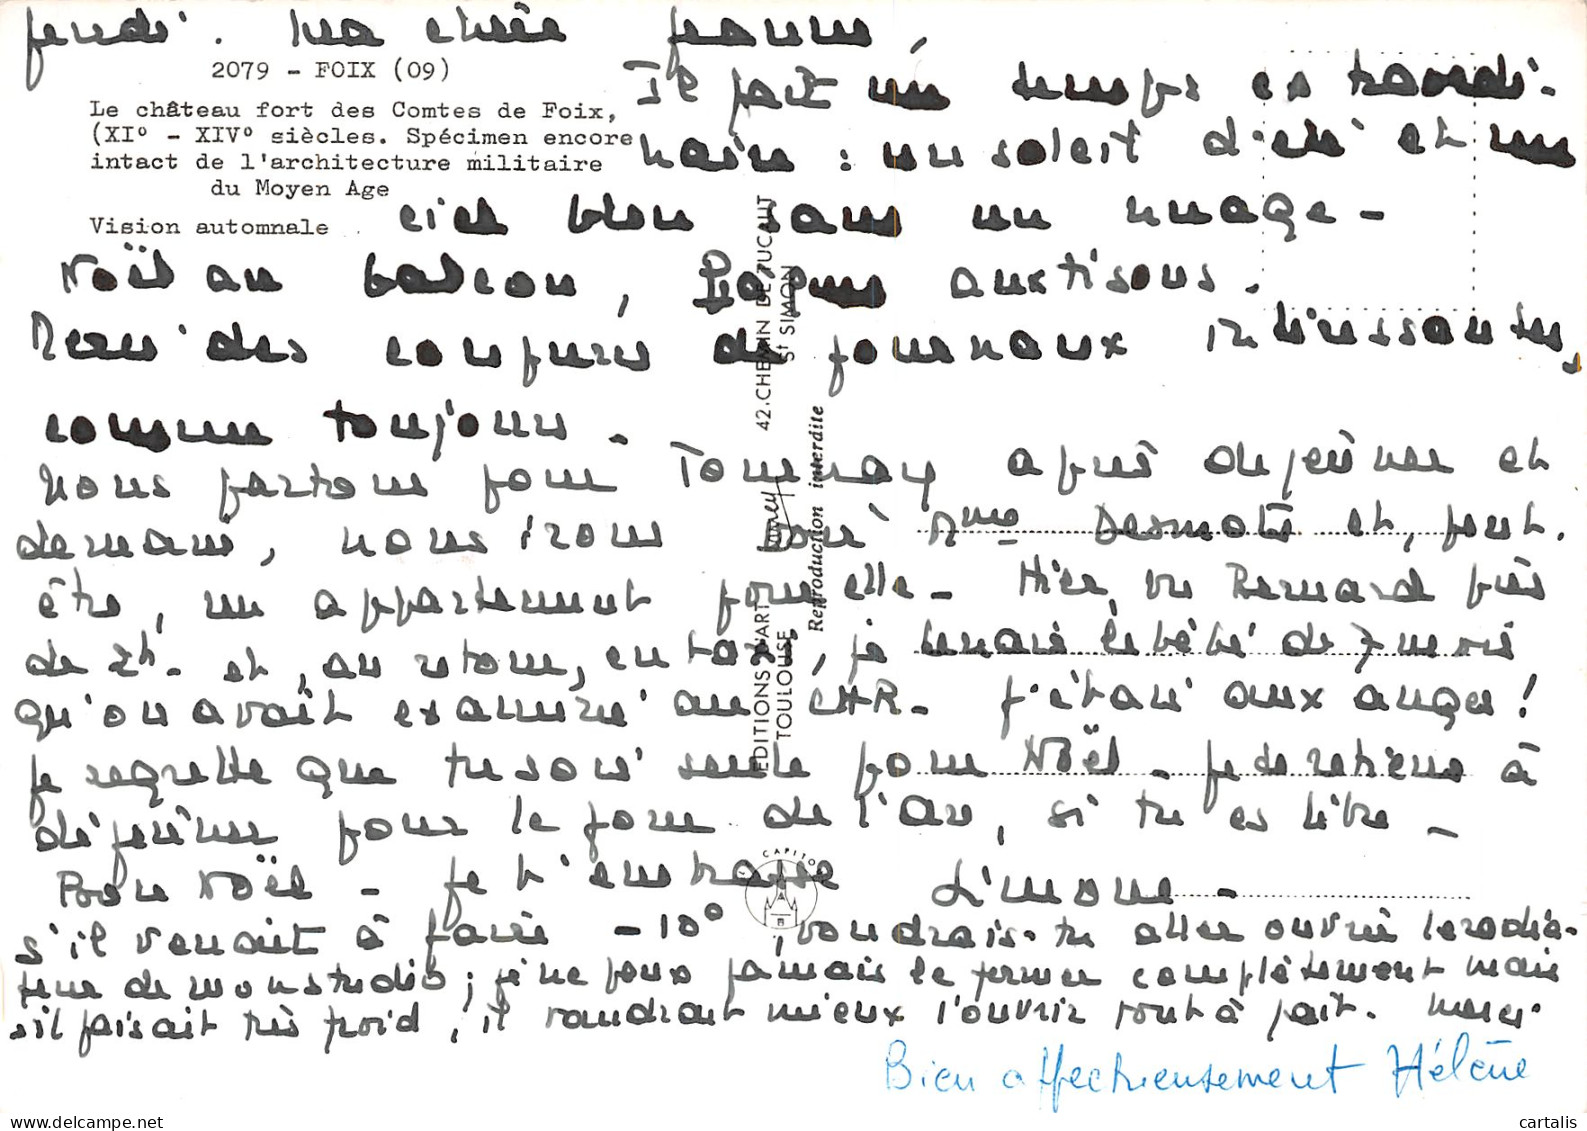 jeudi. Ma chère Jeanne,
2079 - FOIX (09)
Le château fort des Comtes de Foix,
(XIº - XIVº siècles. Spécimen encore
intact de l'architecture militaire
du Moyen Age
Vision automnale
Il fait un temps extraordi-
naire : un soleil d'été et un
ciel bleu sans un nuage -
Noël au balcon, Pâques aux tisons.
Reçu des coupures de journaux intéressantes,
comme toujours.
Nous partons pour Tournay après déjeûner et
demain, nous irons voir Mme Desmots et, peut-
être, un appartement pour elle - Hier, vu Bernard près
de 2h. et, au retour, en taxi, je tenais le bébé de 7 mois
qu'on avait examiné au CHR - J'étais aux anges !
Je regrette que tu sois seule pour Noël - Je te retiens à
déjeûner pour le jour de l'An, si tu es libre -
Bon Noël - Je t'embrasse Simone -
s'il venait à faire -10°, voudrais-tu aller ouvrir le radia-
teur de mon studio ; je ne peux jamais le fermer complètement mais
s'il faisait très froid, il vaudrait mieux l'ouvrir tout à fait. Merci.
Bien affectueusement Hélène
EDITIONS D'ART
42.CHEMIN DE TUCAUT
TOULOUSE St SIMON
Reproduction interdite
CAPITO
cartalis